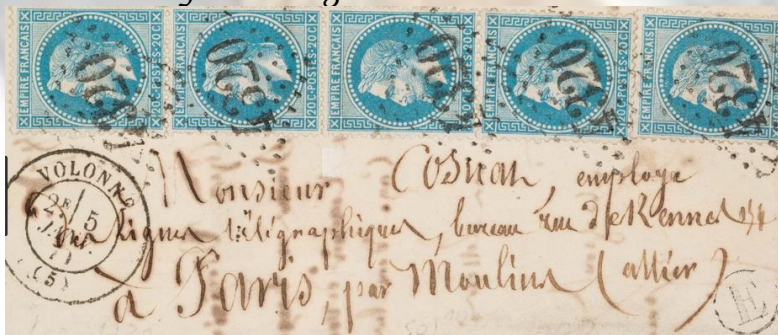 EMPIRE FRANÇAIS 20C POSTES 20C
EMPIRE FRANÇAIS 20C POSTES 20C
EMPIRE FRANÇAIS 20C POSTES 20C
EMPIRE FRANÇAIS 20C POSTES 20C
EMPIRE FRANÇAIS 20C POSTES 20C
4320
4320
4320
4320
4320
VOLONNE
2E 5
JANV
71
(5)
Monsieur Cosnan, employé
lignes télégraphiques, bureau rue de Rennes 154
à Paris, par Moulins (allier)